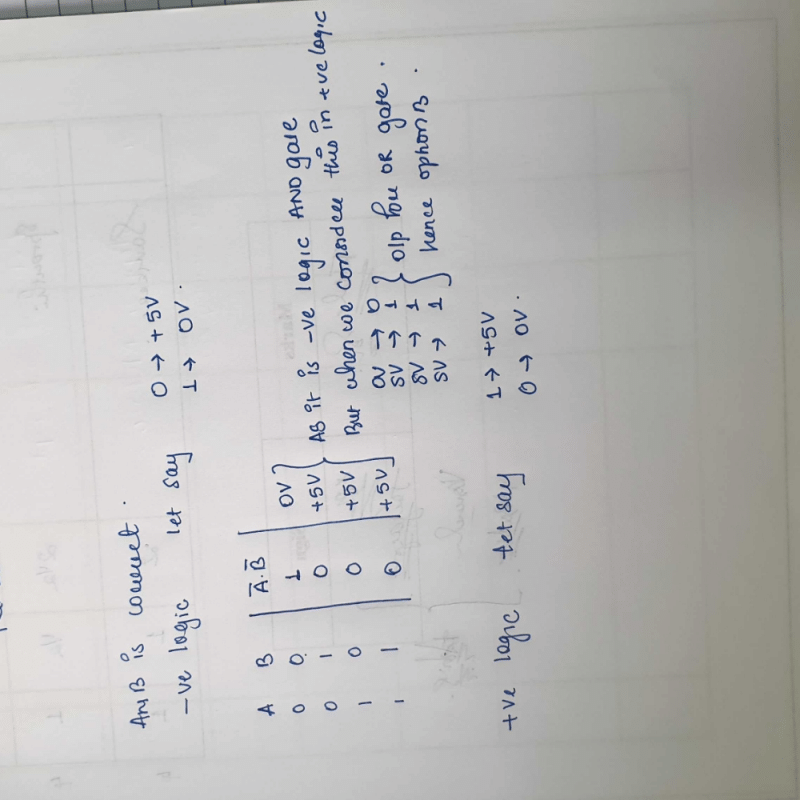 Ans B is correct.
-ve logic let say 0 → +5V
1 → 0V.
A B A̅.B̅
0 0 1 0V
0 1 0 +5V
1 0 0 +5V
1 1 0 +5V
As it is -ve logic AND gate
But when we consider this in +ve logic
0V → 0
5V → 1 O/p for OR gate.
5V → 1
5V → 1 hence option B.
+ve logic let say 1 → +5V
0 → 0V.